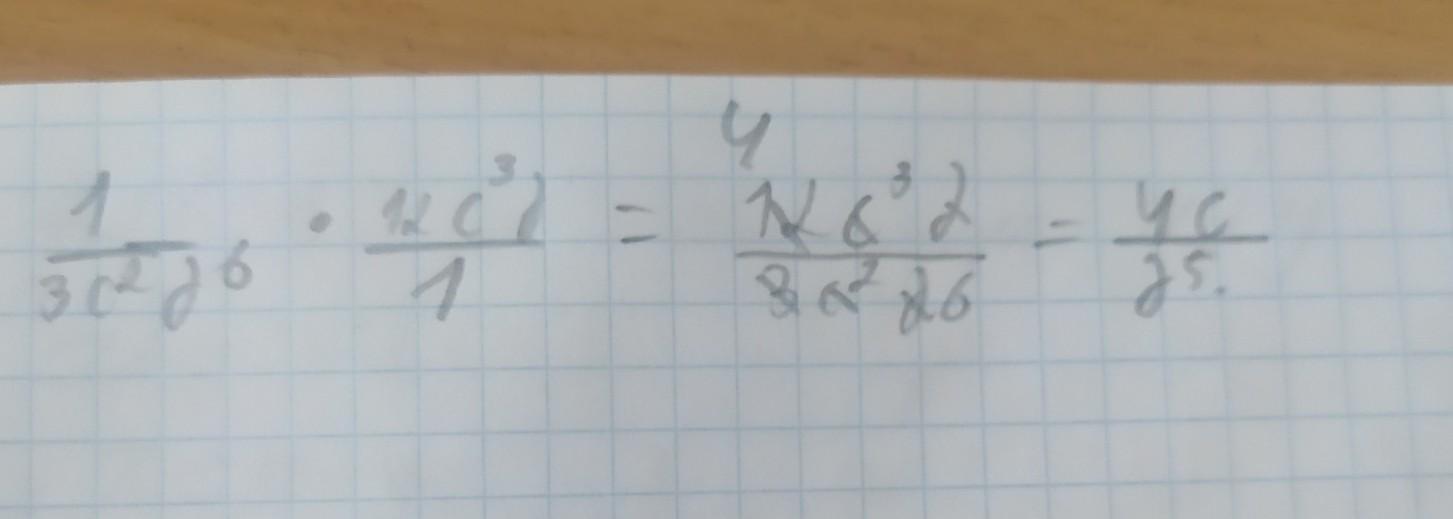 1/(3c² d⁶) · 12c³d/1 = 12c³d/(3c²d⁶) = 4c/d⁵.
4